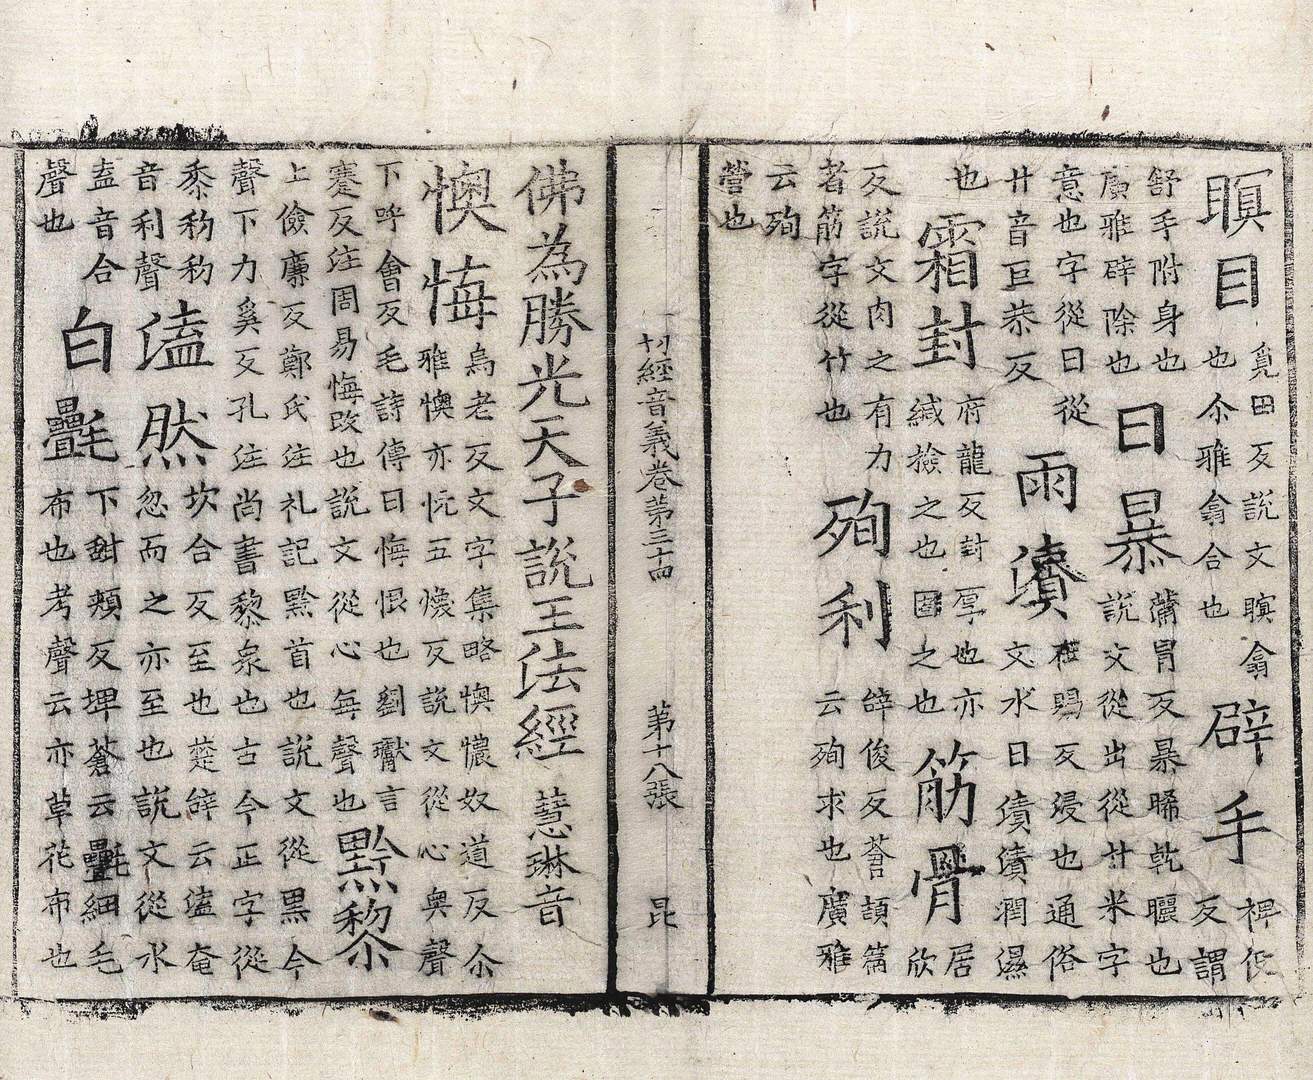 瞑目覓田反說文瞑翕也尒雅翕合也辟手裨役反謂
舒手附身也廣雅辟除也日暴蒲冐反暴晞乾曬也說文從出從廾米字
意也字從日從廾音巨恭反雨漬賜反浸也通俗文水日漬漬潤濕
也霜封府龍反封厚也亦緘撿之也圖之也筋骨居欣
反說文肉之有力者筋字從竹也殉利辝俊反蒼頡篇云殉求也廣雅
云殉營也
一切經音義卷第三十四 第十八張 昆
佛為勝光天子說王法經 慧琳音
懊悔烏老反文字集略懊憹奴道反尒雅懊亦忨五煥反說文從心奥聲
下呼會反毛詩傳曰悔恨也劉瓛言蹇反注周易悔攺也說文從心每聲也黔黎
上儉廉反鄭氏注礼記黔首也說文從黑今聲下力奚反孔注尚書黎衆也古今正字從
黍称称音利聲溘然坎合反至也楚辝云溘奄忽而之亦至也說文從水
盍音合聲也白㲲下甜頰反埤蒼云㲲細毛布也考聲云亦草花布也